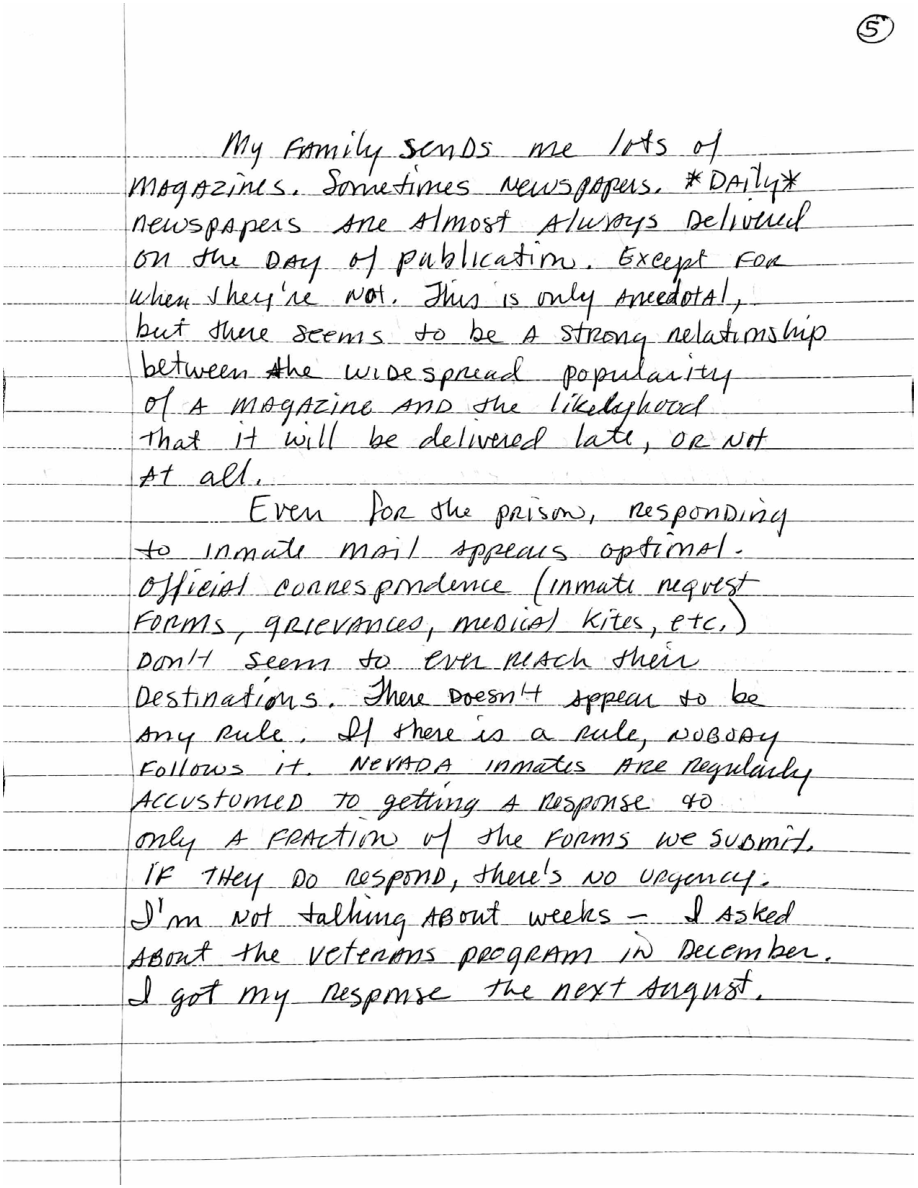 5
My family sends me lots of
magazines. Sometimes newspapers. *Daily*
newspapers are almost always delivered
on the day of publication. Except for
when they're not. This is only anecdotal,
but there seems to be a strong relationship
between the widespread popularity
of a magazine and the likelyhood
that it will be delivered late, or not
at all.
Even for the prison, responding
to inmate mail appears optional.
Official correspondence (inmate request
forms, grievances, medical kites, etc.)
don't seem to ever reach their
destinations. There doesn't appear to be
any rule. If there is a rule, nobody
follows it. Nevada inmates are regularly
accustomed to getting a response to
only a fraction of the forms we submit.
If they do respond, there's no urgency.
I'm not talking about weeks – I asked
about the veterans program in December.
I got my response the next August.